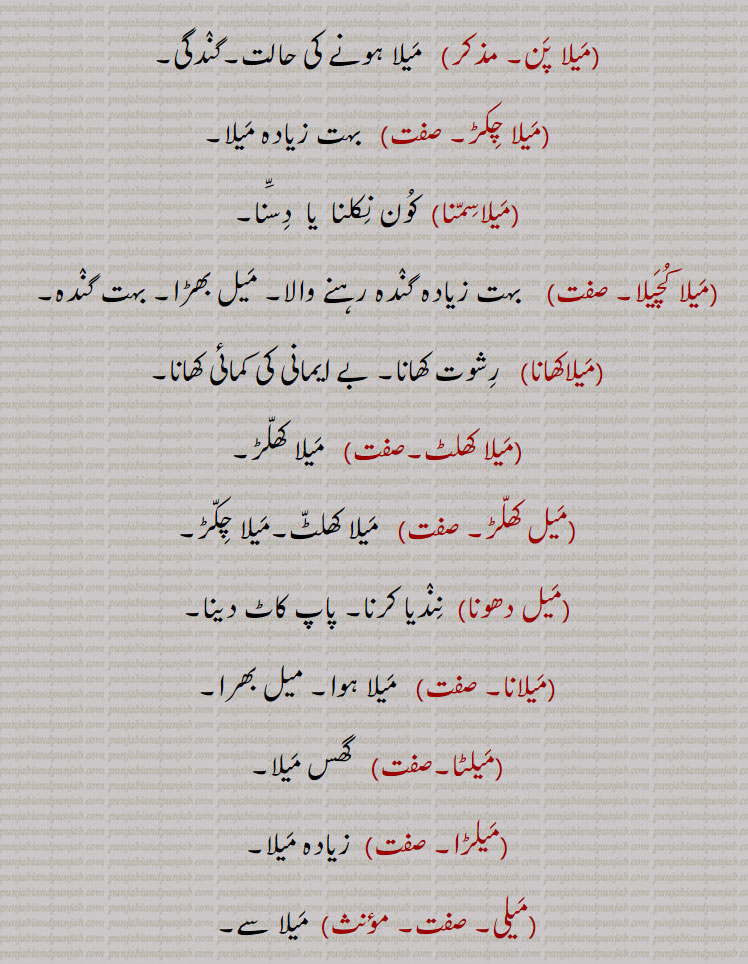 (مَیلا پَن۔ مذکر) مَیلا ہونے کی حالت۔گنْدگی۔
(مَیلا چِکڑ۔ صفت) بہت زیادہ مَیلا۔
(مَیلاسِمّنا) کوُن نِکلنا یا دِسنّا۔
(مَیلا کُچَیلا۔ صفت) بہت زیادہ گنْدہ رہنے والا۔ مَیل بھڑا۔ بہت گنْدہ۔
(مَیلاکھانا) رِشوت کھانا۔ بے ایمانی کی کمائی کھانا۔
(مَیلا کھلٹ۔صفت) مَیلا کھلّڑ۔
(مَیل کھلّڑ۔ صفت) مَیلا کھلٹّ۔مَیلا چِکّڑ۔
(مَیل دھونا) نِنْدیا کرنا۔ پاپ کاٹ دینا۔
(مَیلانا۔ صفت) مَیلا ہوا۔ میل بھرا۔
(مَیلٹا۔صفت) گھس مَیلا۔
(مَیلڑا۔ صفت) زیادہ مَیلا۔
(مَیلی۔ صفت۔ مؤنث) مَیلا سے۔
punjabiandpunjab.com